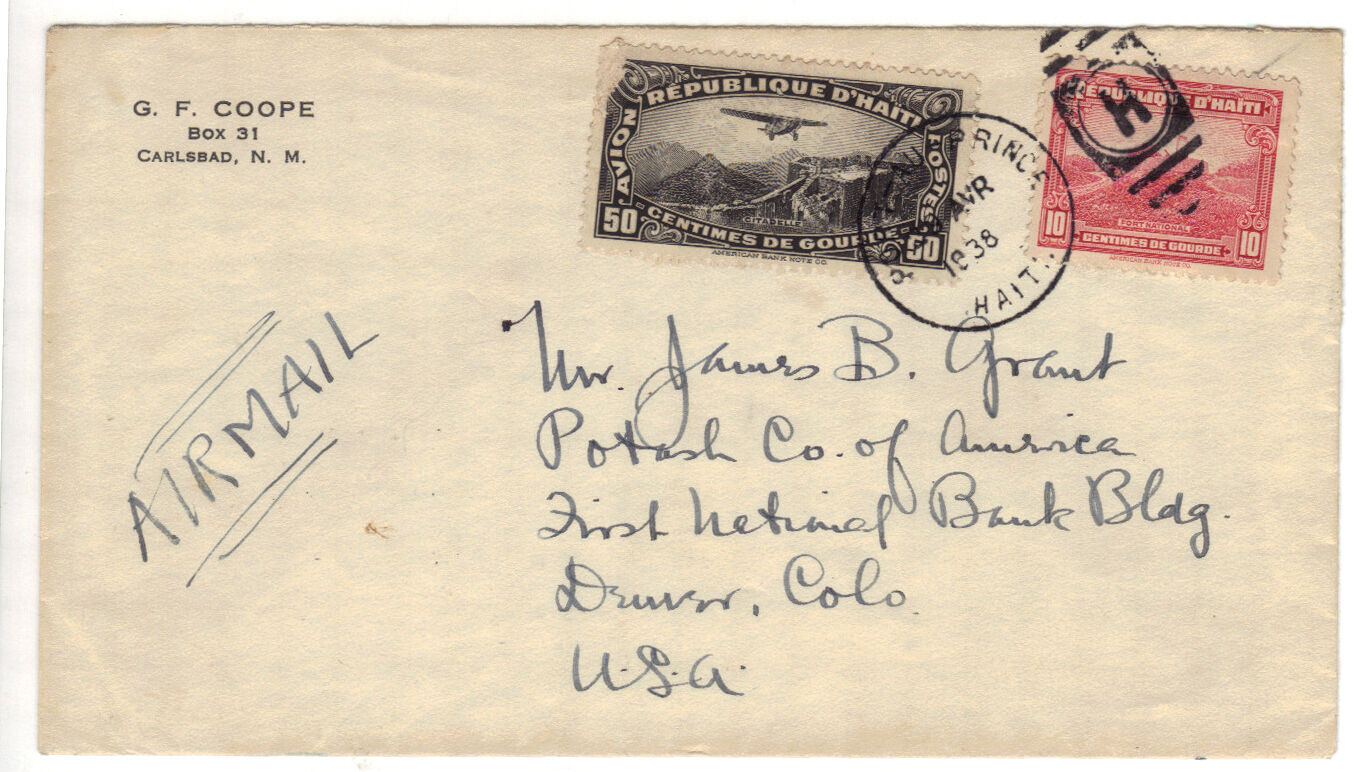 G. F. COOPE
BOX 31
CARLSBAD, N. M.
RÉPUBLIQUE D'HAÏTI
AVION
POSTES
CITADELLE
50 CENTIMES DE GOURDE 50
AMERICAN BANK NOTE CO.
PRINCE
AVR
1938
HAITI
H
RÉPUBLIQUE D'HAÏTI
FORT NATIONAL
10 CENTIMES DE GOURDE 10
AMERICAN BANK NOTE CO.
AIRMAIL
Mr. James B. Grant
Potash Co. of America
First National Bank Bldg.
Denver, Colo.
U.S.A.